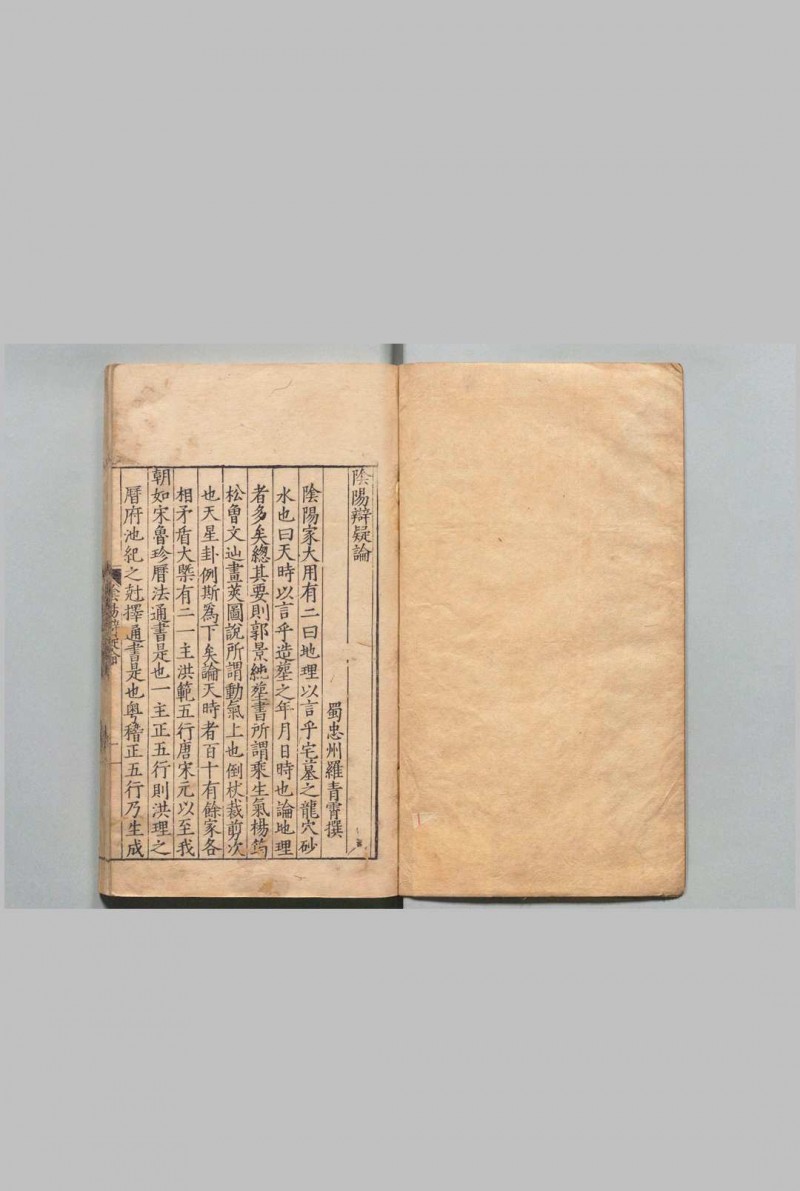 陰陽辯疑論
蜀忠州羅青霄撰
陰陽家大用有二曰地理以言乎宅墓之龍穴砂
水也曰天時以言乎造塟之年月日時也論地理
者多矣總其要則郭景純塟書所謂乘生氣楊筠
松曾文辿畫莢圖說所謂動氣上也倒杖裁剪次
也天星卦例斯為下矣論天時者百十有餘家各
相矛盾大槩有二一主洪範五行唐宋元以至我
朝如宋魯珍曆法通書是也一主正五行則洪理之
曆府池紀之尅擇通書是也粵稽正五行乃生成
陰陽辯疑論